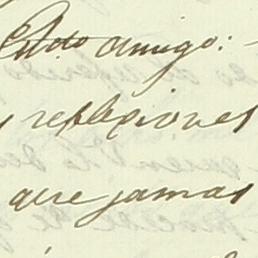 amigo:
reflexiones
que jamas